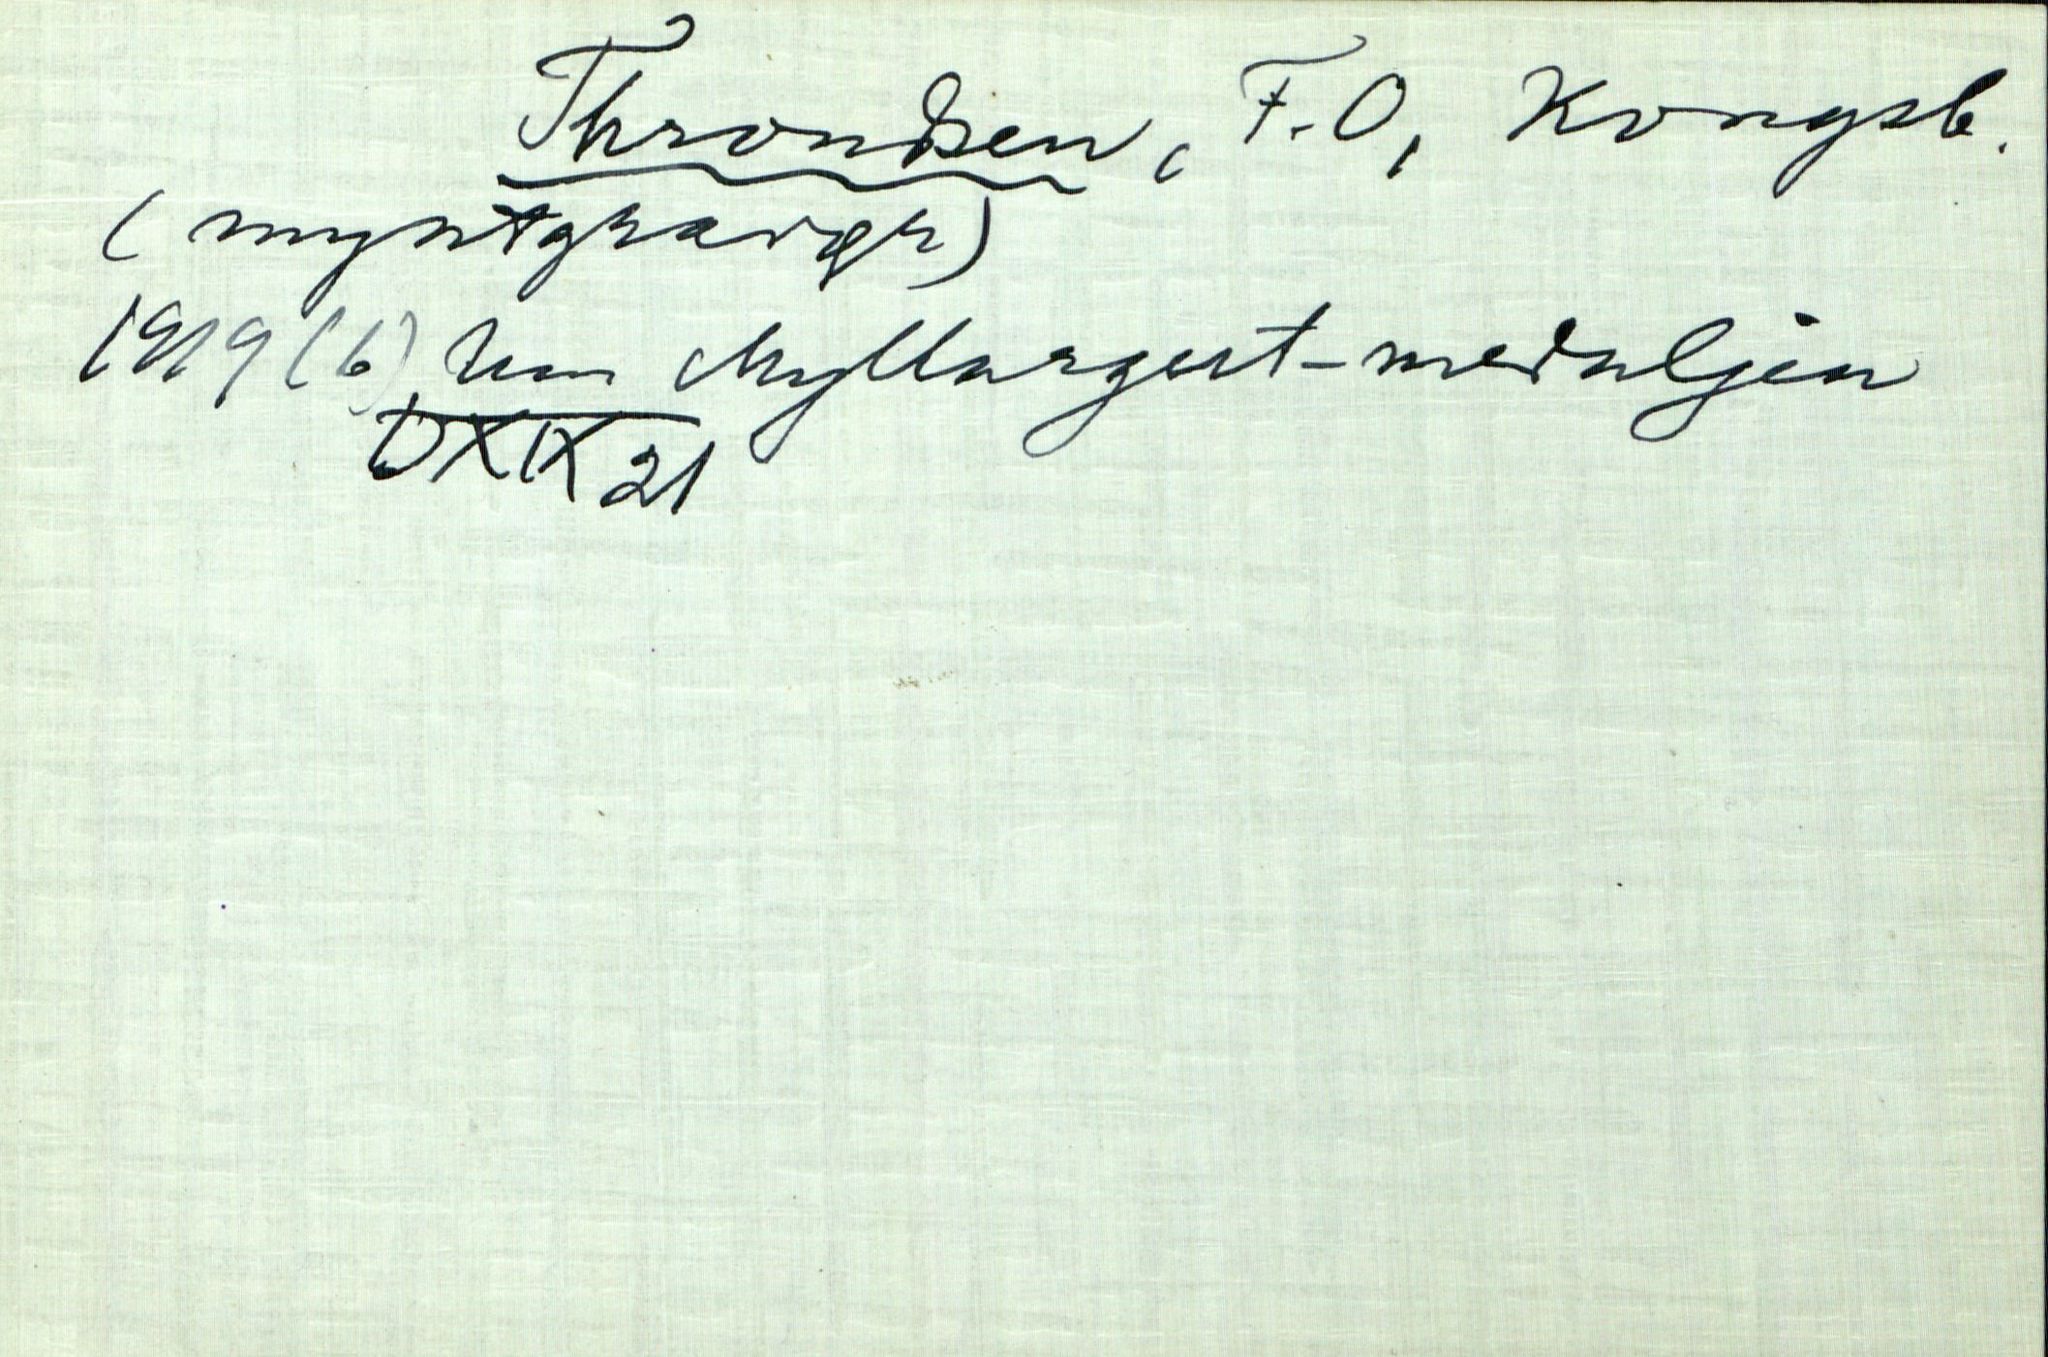 Throndsen, F.O, Kongsb.
(myntgravør)
1919 (6) Um Myllargut-medaljen
DXIX 21